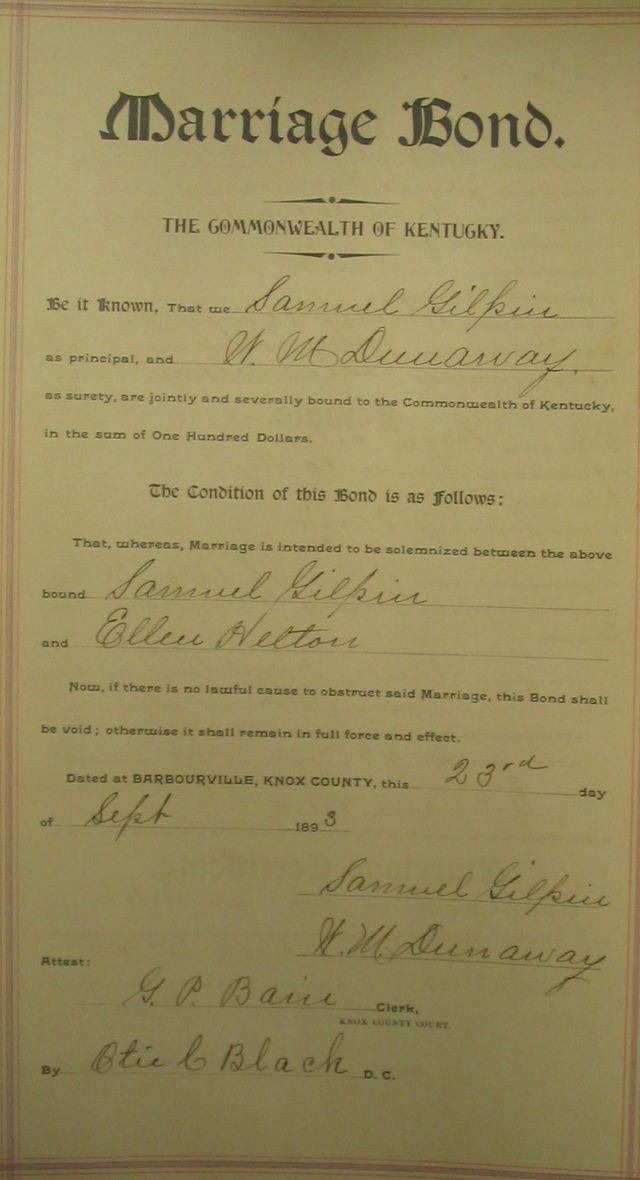 Marriage Bond.
THE COMMONWEALTH OF KENTUCKY.
Be it Known, That we Samuel Gilpin
as principal, and W. M Dunaway.
as surety, are jointly and severally bound to the Commonwealth of Kentucky,
in the sum of One Hundred Dollars.
The Condition of this Bond is as Follows:
That, whereas, Marriage is intended to be solemnized between the above
bound Samuel Gilpin
and Ellen Helton
Now, if there is no lawful cause to obstruct said Marriage, this Bond shall
be void; otherwise it shall remain in full force and effect.
Dated at BARBOURVILLE, KNOX COUNTY, this 23rd day
of Sept 1893
Samuel Gilpin
W. M. Dunaway
Attest:
G. P. Bain Clerk,
KNOX COUNTY COURT.
By Otie C Black D. C.